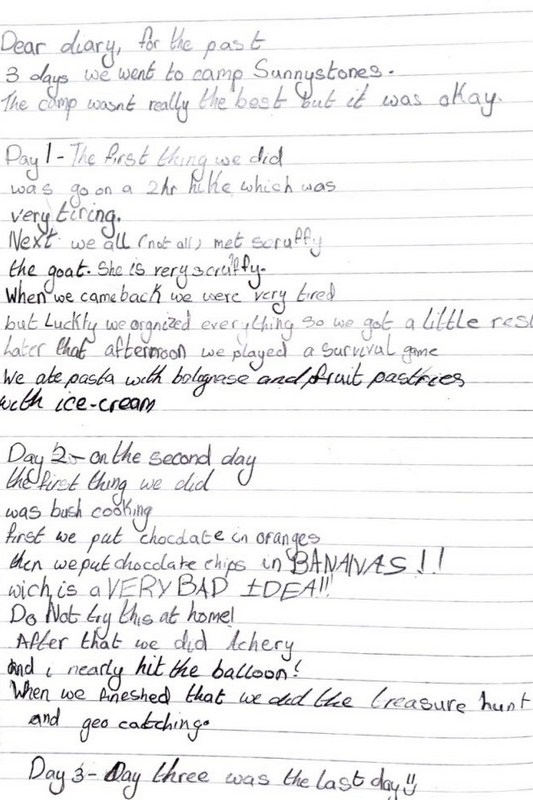 Dear diary, for the past
3 days we went to camp Sunnystones.
The camp wasnt really the best but it was okay.
Day 1 - The first thing we did
was go on a 2hr hike which was
very tiring.
Next we all (not all) met scruffy
the goat. She is very scruffy.
When we came back we were very tired
but Luckly we orgnized everything so we got a little rest
Later that afternoon we played a survival game
We ate pasta with bolognase and fruit pastries
with ice-cream
Day 2 - on the second day
the first thing we did
was bush cooking
first we put chocdate in oranges
then we put chocolate chips in BANANAS!!
wich is a VERY BAD IDEA!!!
Do Not try this at home!
After that we did Achery
And i nearly hit the balloon!
When we fineshed that we did the treasure hunt
and geo catching.
Day 3 - Day three was the last day!!